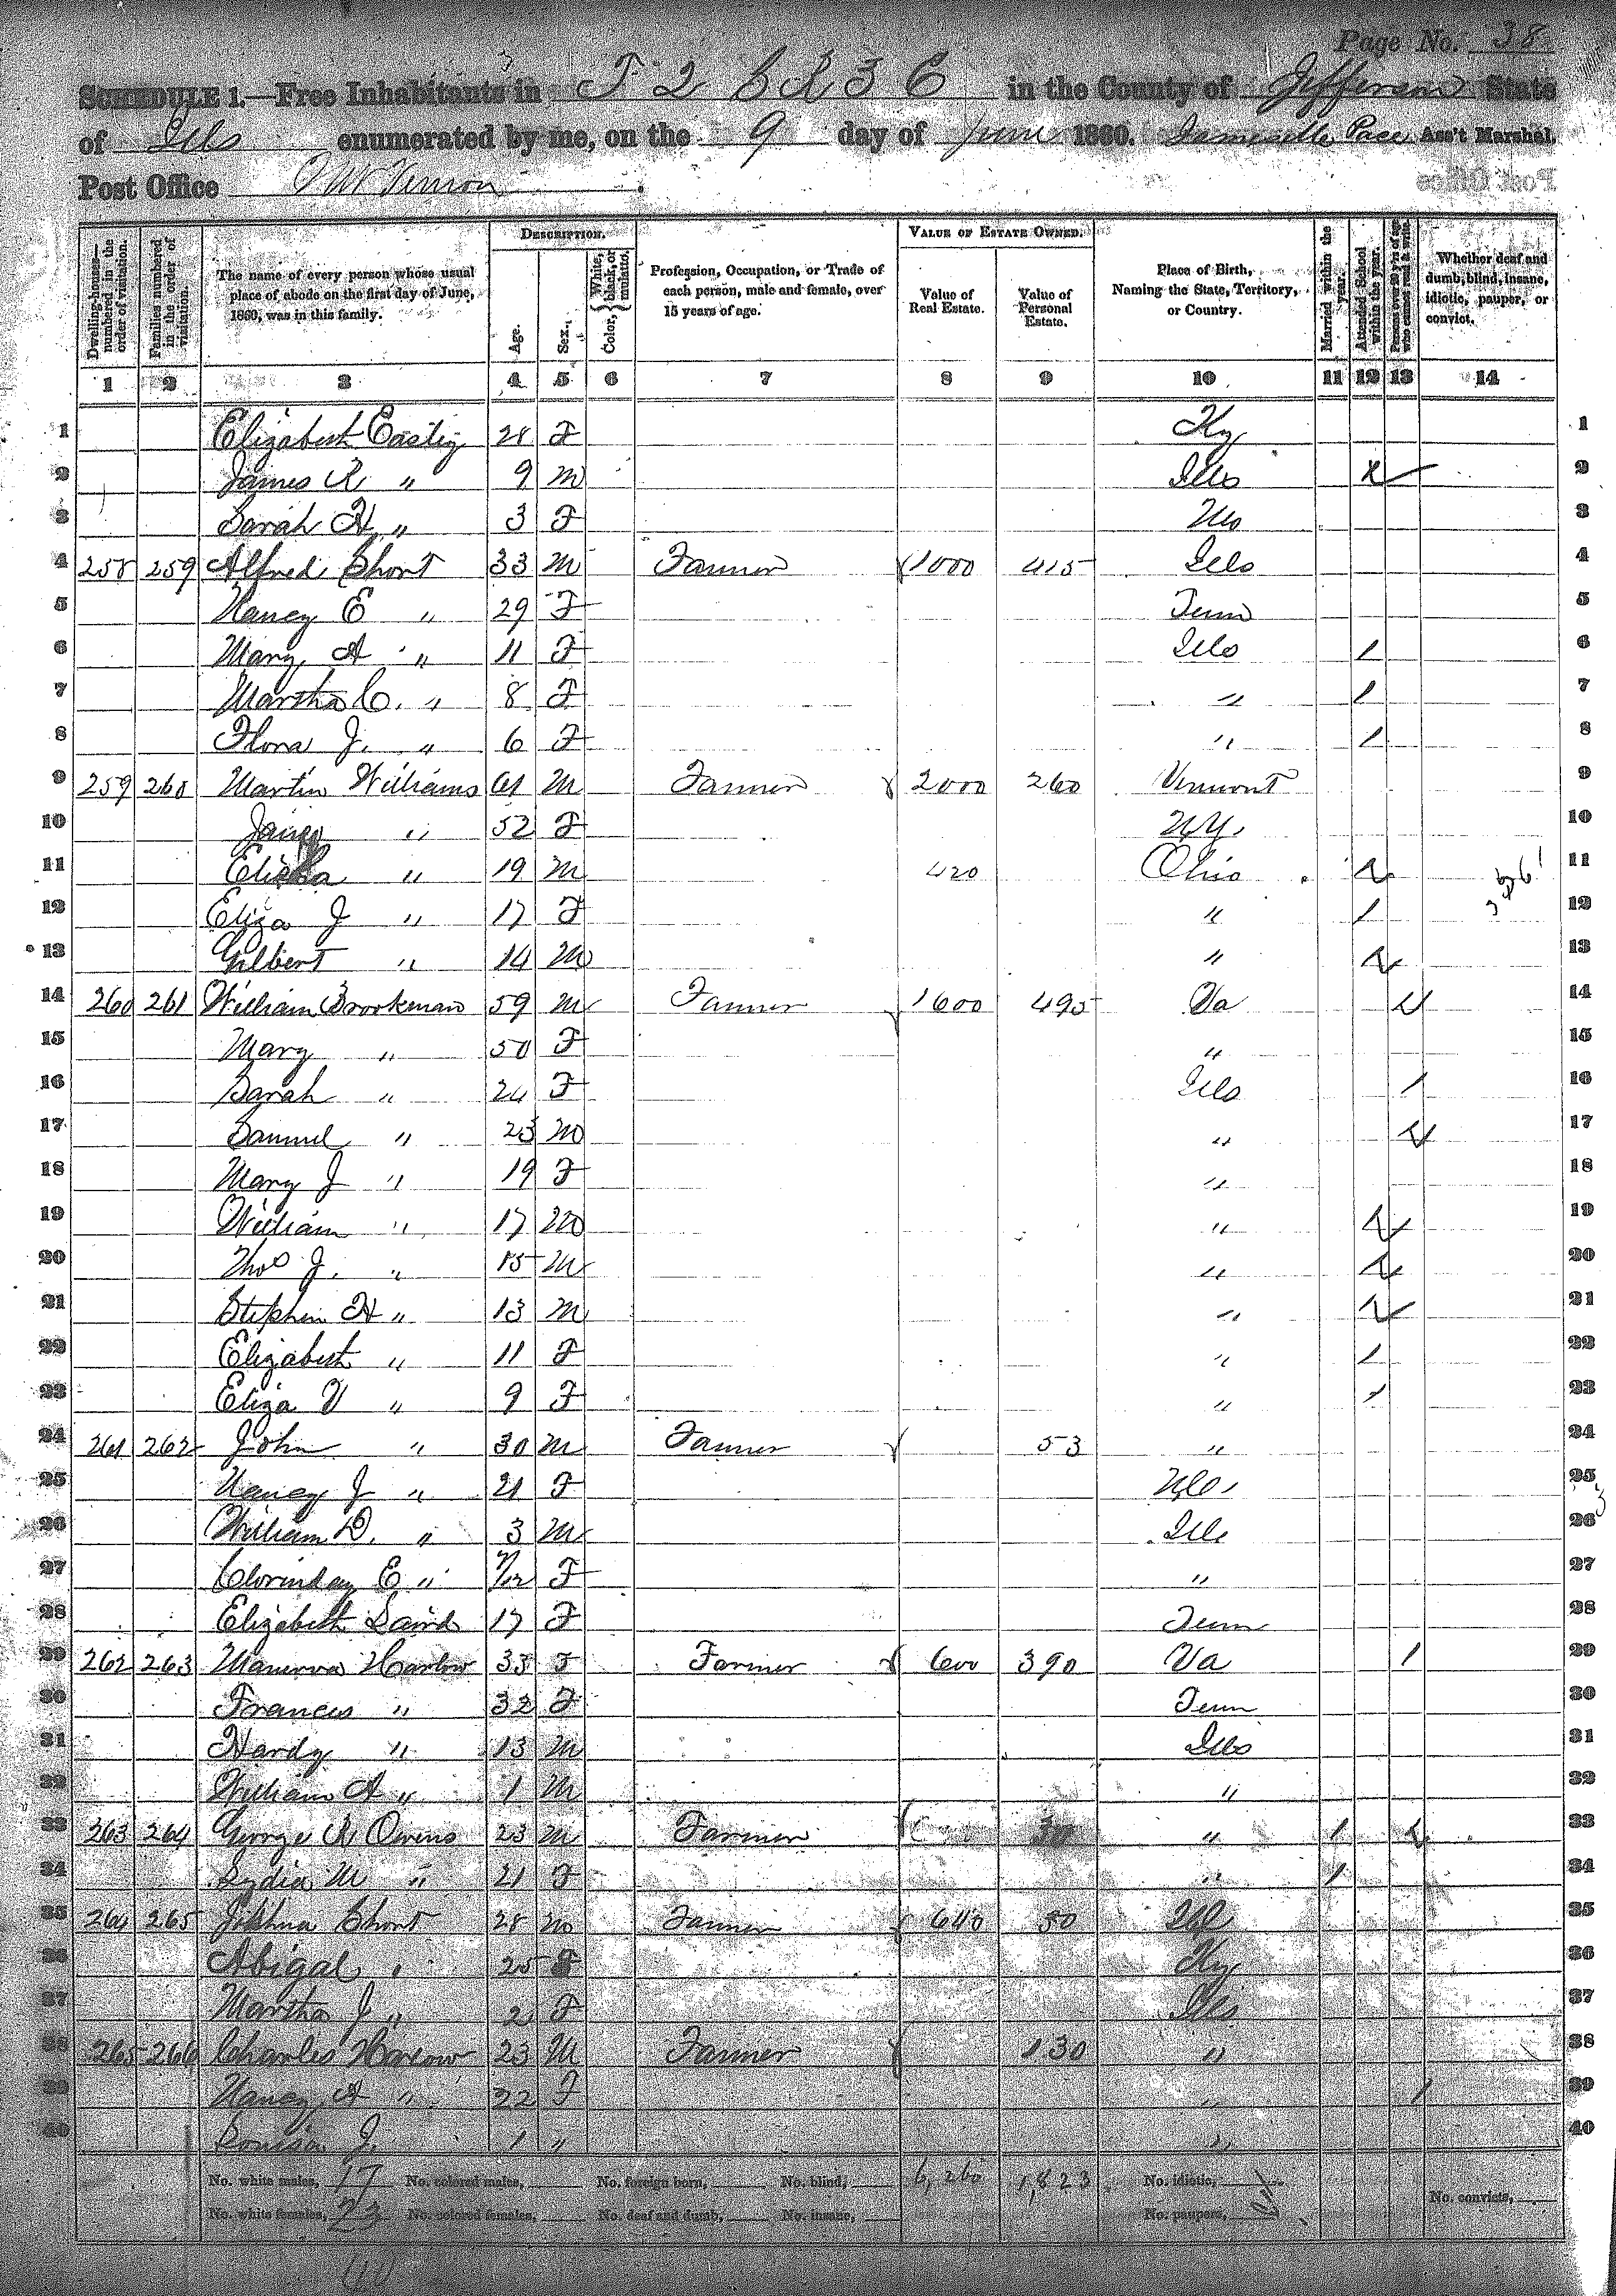 Page No. 38
SCHEDULE 1.—Free Inhabitants in T 2 S R 3 E in the County of Jefferson State
of Ills enumerated by me, on the 9 day of June 1860. Pace Ass't Marshal.
Post Office Mt Vernon
Dwelling-houses—numbered in the order of visitation.
Families numbered in the order of visitation.
The name of every person whose usual place of abode on the first day of June, 1860, was in this family.
DESCRIPTION.
Age.
Sex.
Color, { White, black, or mulatto.
Profession, Occupation, or Trade of each person, male and female, over 15 years of age.
VALUE OF ESTATE OWNED.
Value of Real Estate.
Value of Personal Estate.
Place of Birth, Naming the State, Territory, or Country.
Married within the year.
Attended School within the year.
Persons over 20 y'rs of age who cannot read & write.
Whether deaf and dumb, blind, insane, idiotic, pauper, or convict.
1 2 3 4 5 6 7 8 9 10 11 12 13 14
1 Elizabeth 28 F Ky 1
2 James R " 9 m Ills 2
3 Sarah H " 3 F 3
4 258 259 Alfred Short 33 M Farmer 1000 415 Ills 4
5 Nancy E " 29 F Tenn 5
6 Mary A " 11 F Ills / 6
7 Martha C. " 8 F " / 7
8 Flora J. " 6 F " / 8
9 259 260 Martin Williams 61 M Farmer 2000 260 Vermont 9
10 " 52 F N.Y. 10
11 Elisha " 19 M 420 Ohio 11
12 Eliza J " 17 F " / 12
13 Gilbert " 14 M " 13
14 260 261 William Brookman 59 M Farmer 1600 495 Va 14
15 Mary " 50 F " 15
16 Sarah " 24 F Ills / 16
17 Samuel " 23 M " 17
18 Mary J " 19 F " 18
19 William " 17 M " 19
20 Thos J. " 15 M " 20
21 Stephen H " 13 M " 21
22 Elizabeth " 11 F " / 22
23 Eliza V " 9 F " / 23
24 261 262 John " 30 M Farmer 53 " 24
25 Nancy J " 21 F 25
26 William D. " 3 M Ills 26
27 E " /12 F " 27
28 Elizabeth 17 F Tenn 28
29 262 263 Harlow 33 F Farmer 600 390 Va / 29
30 Frances " 32 F Tenn 30
31 Hardy " 13 M Ills 31
32 William A " 1 M " 32
33 263 264 George R Owens 23 M Farmer 30 " / 33
34 Lydia M " 21 F " / 34
35 264 265 Joshua Short 28 M Farmer 640 50 Ill 35
36 Abigal " 25 F Ky 36
37 Martha J " 2 F Ills 37
38 265 266 Charles Harlow 23 M Farmer 130 " 38
39 Nancy A " 22 F " / 39
40 Louisa J. 1 " " 40
No. white males, 17 No. colored males, No. foreign born, No. blind, 6,260 1,823 No. idiotic,
No. white females, 23 No. colored females, No. deaf and dumb, No. insane, No. paupers, No. convicts,
40